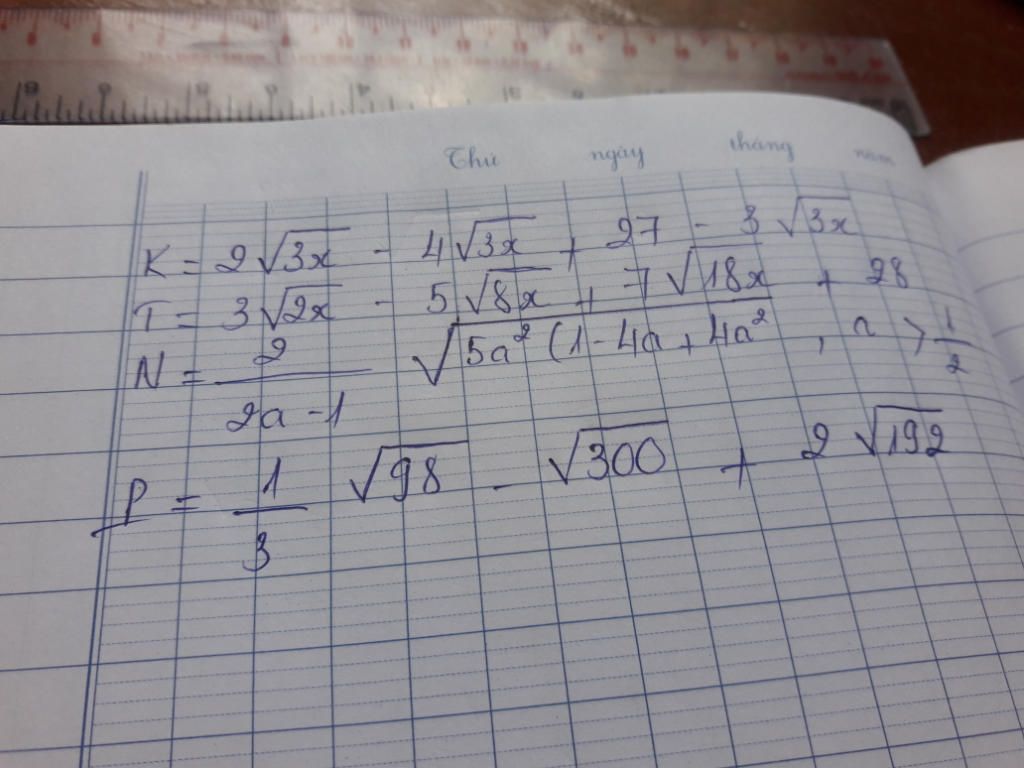 Thứ ngày tháng năm
K = 2√3x - 4√3x + 27 - 3√3x
T = 3√2x - 5√8x + 7√18x + 28
N = 2/(2a - 1) √5a² (1 - 4a + 4a² , a > 1/2
P = 1/3 √98 - √300 + 2√192